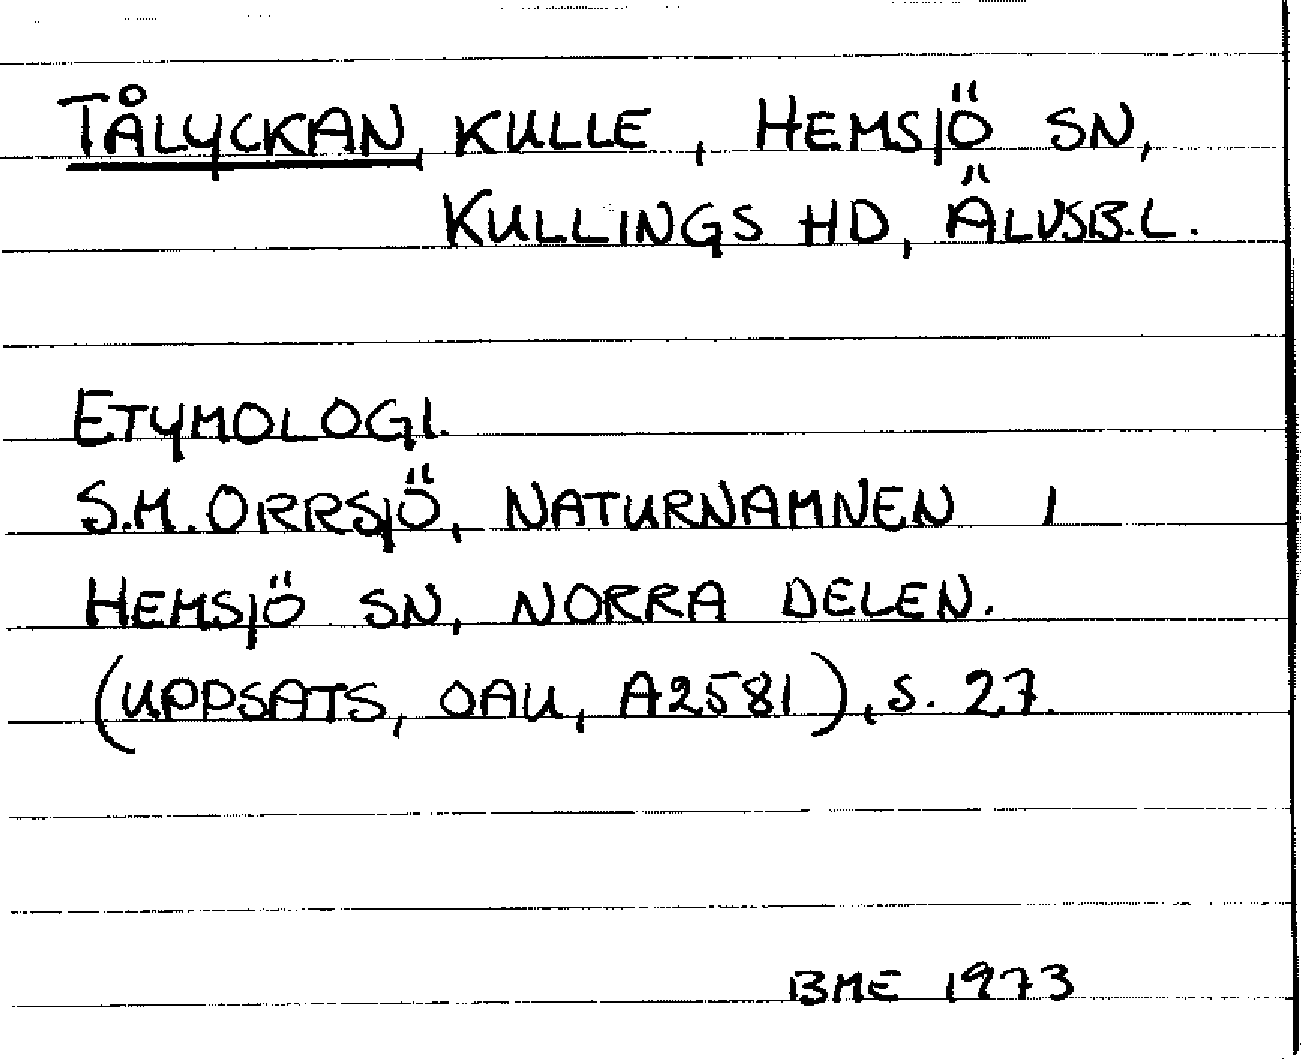 TÅLYCKAN, KULLE, HEMSJÖ SN,
KULLINGS HD, ÄLVSB.L.
ETYMOLOGI.
S.M. ORRSJÖ, NATURNAMNEN I
HEMSJÖ SN, NORRA DELEN.
(UPPSATS, OAU, A2581), S. 27.
BME 1973